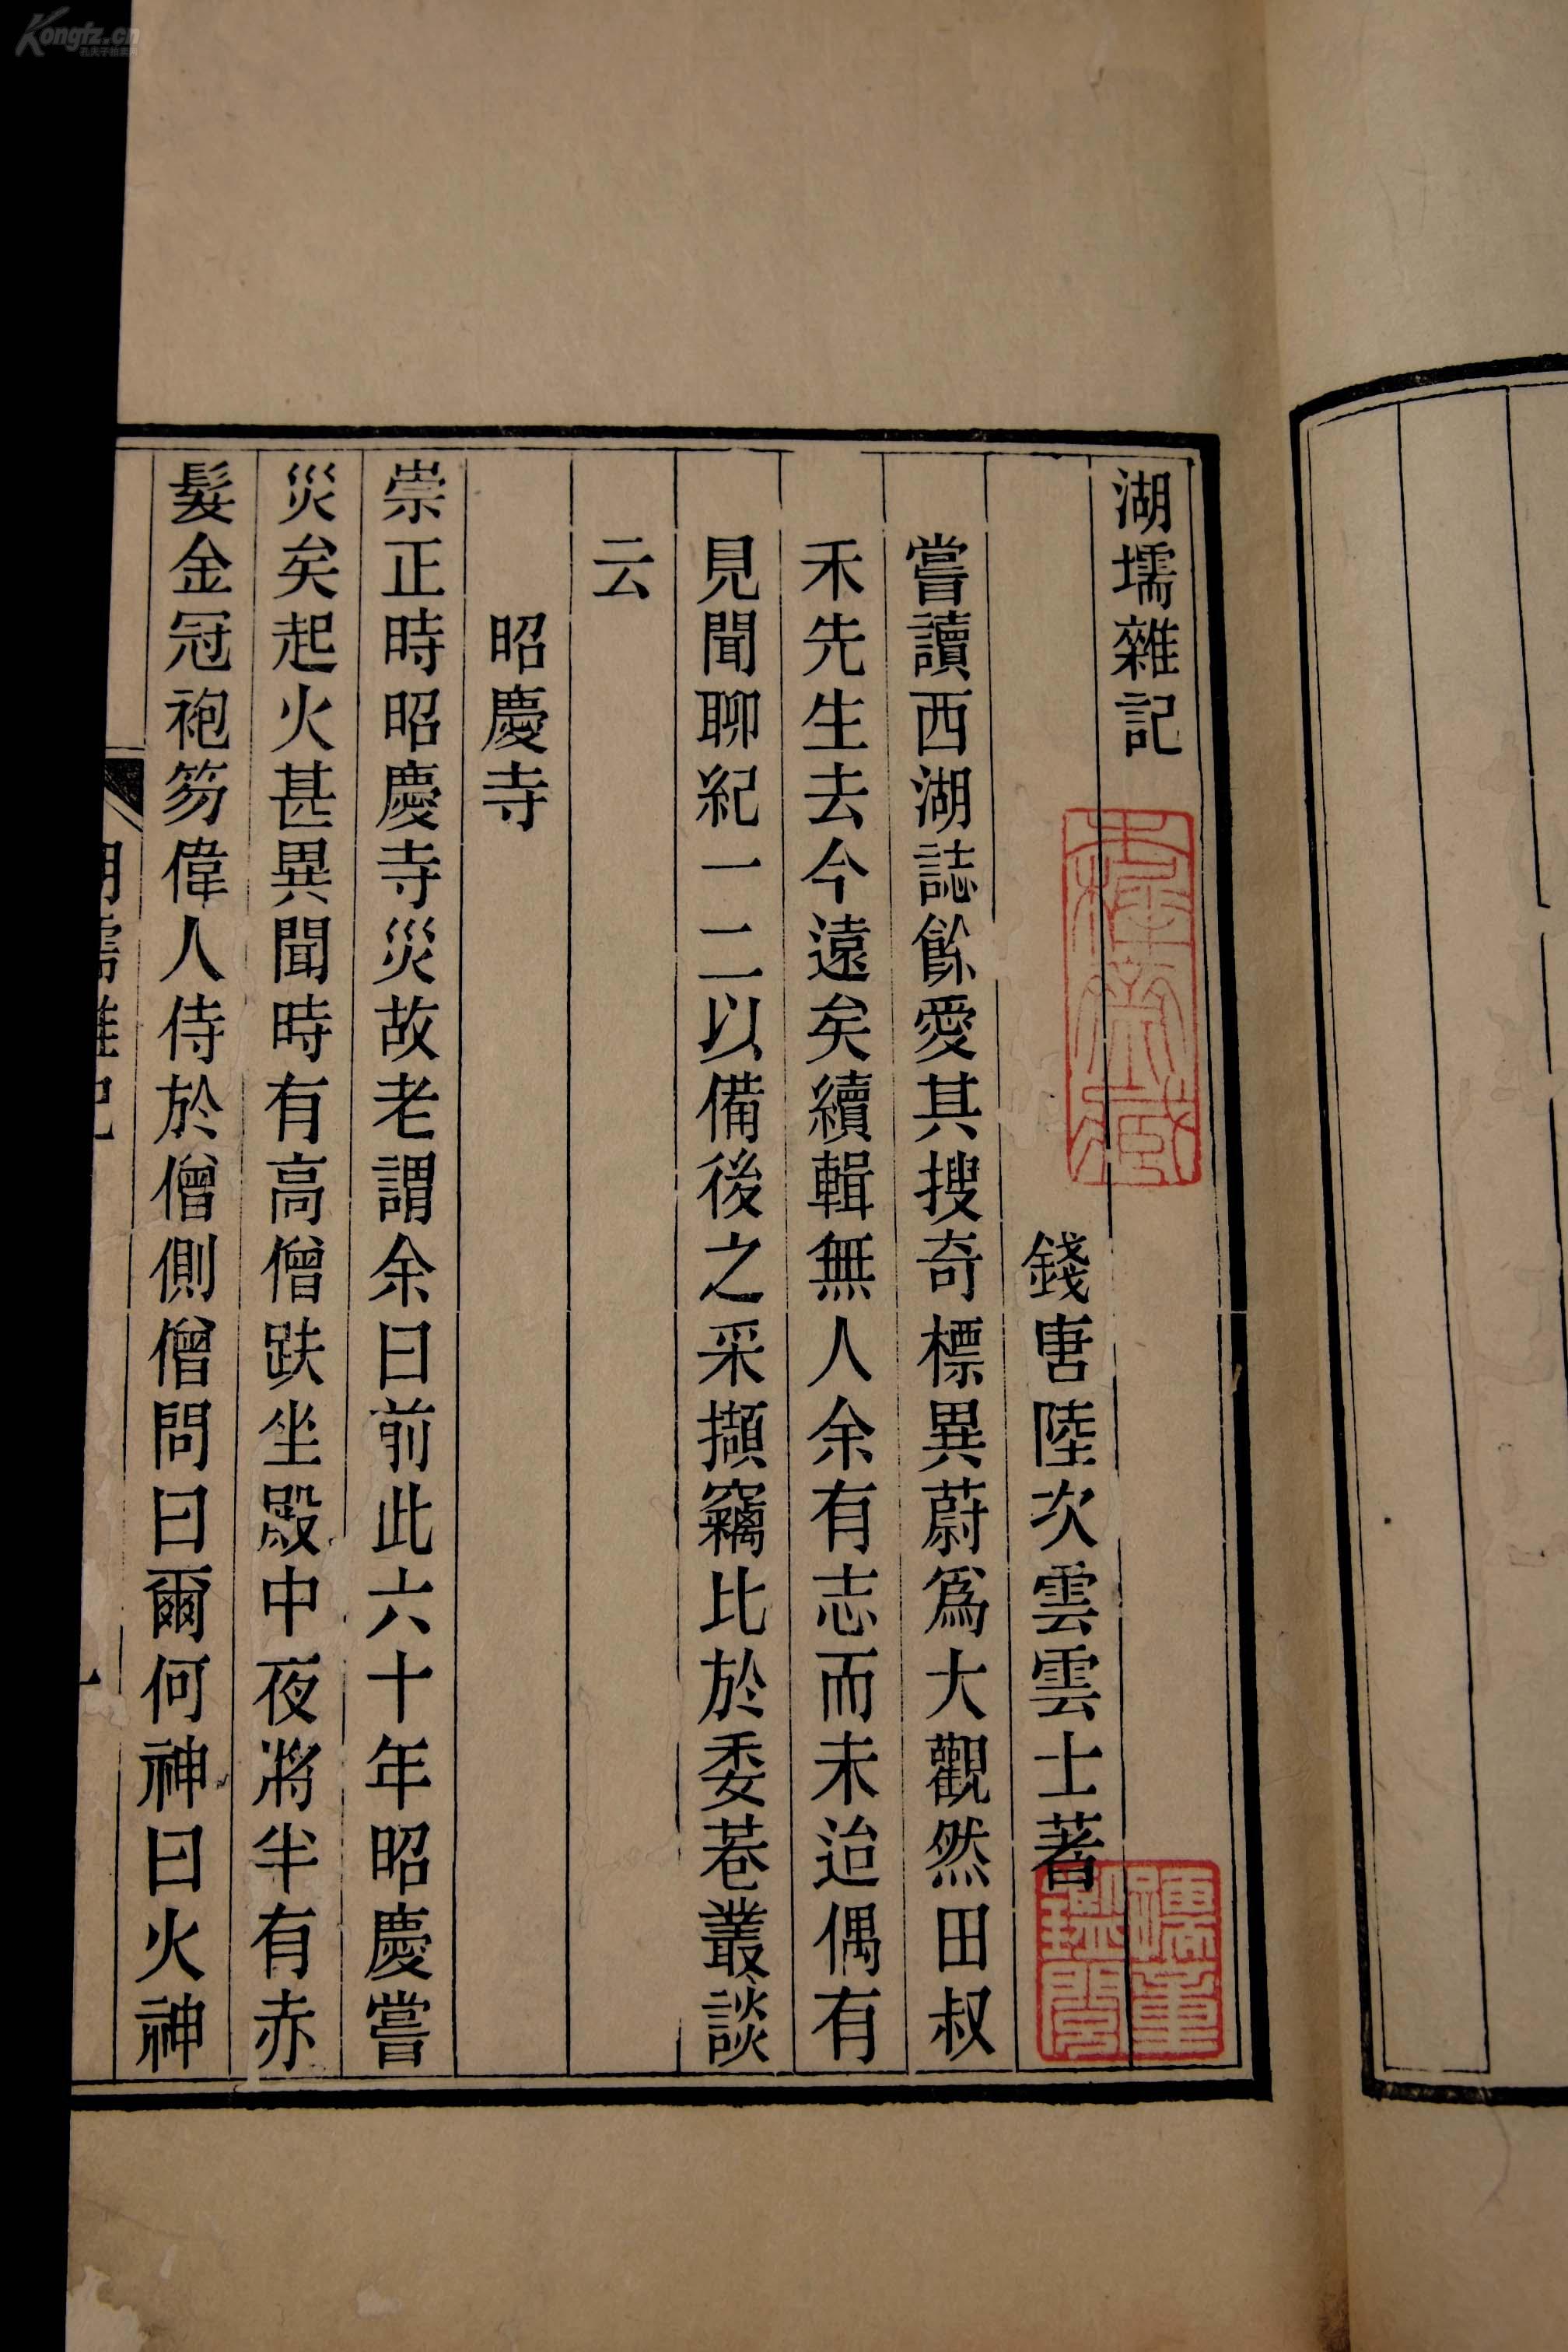 湖壖雜記
錢唐陸次雲雲士著
嘗讀西湖誌餘愛其搜奇標異蔚爲大觀然田叔
禾先生去今遠矣續輯無人余有志而未迨偶有
見聞聊紀一二以備後之采擷竊比於委巷叢談
云
昭慶寺
崇正時昭慶寺災故老謂余曰前此六十年昭慶嘗
災矣起火甚異聞時有高僧趺坐殿中夜將半有赤
髮金冠袍笏偉人侍於僧側僧問曰爾何神曰火神
湖壖雜記
Kongfz.cn